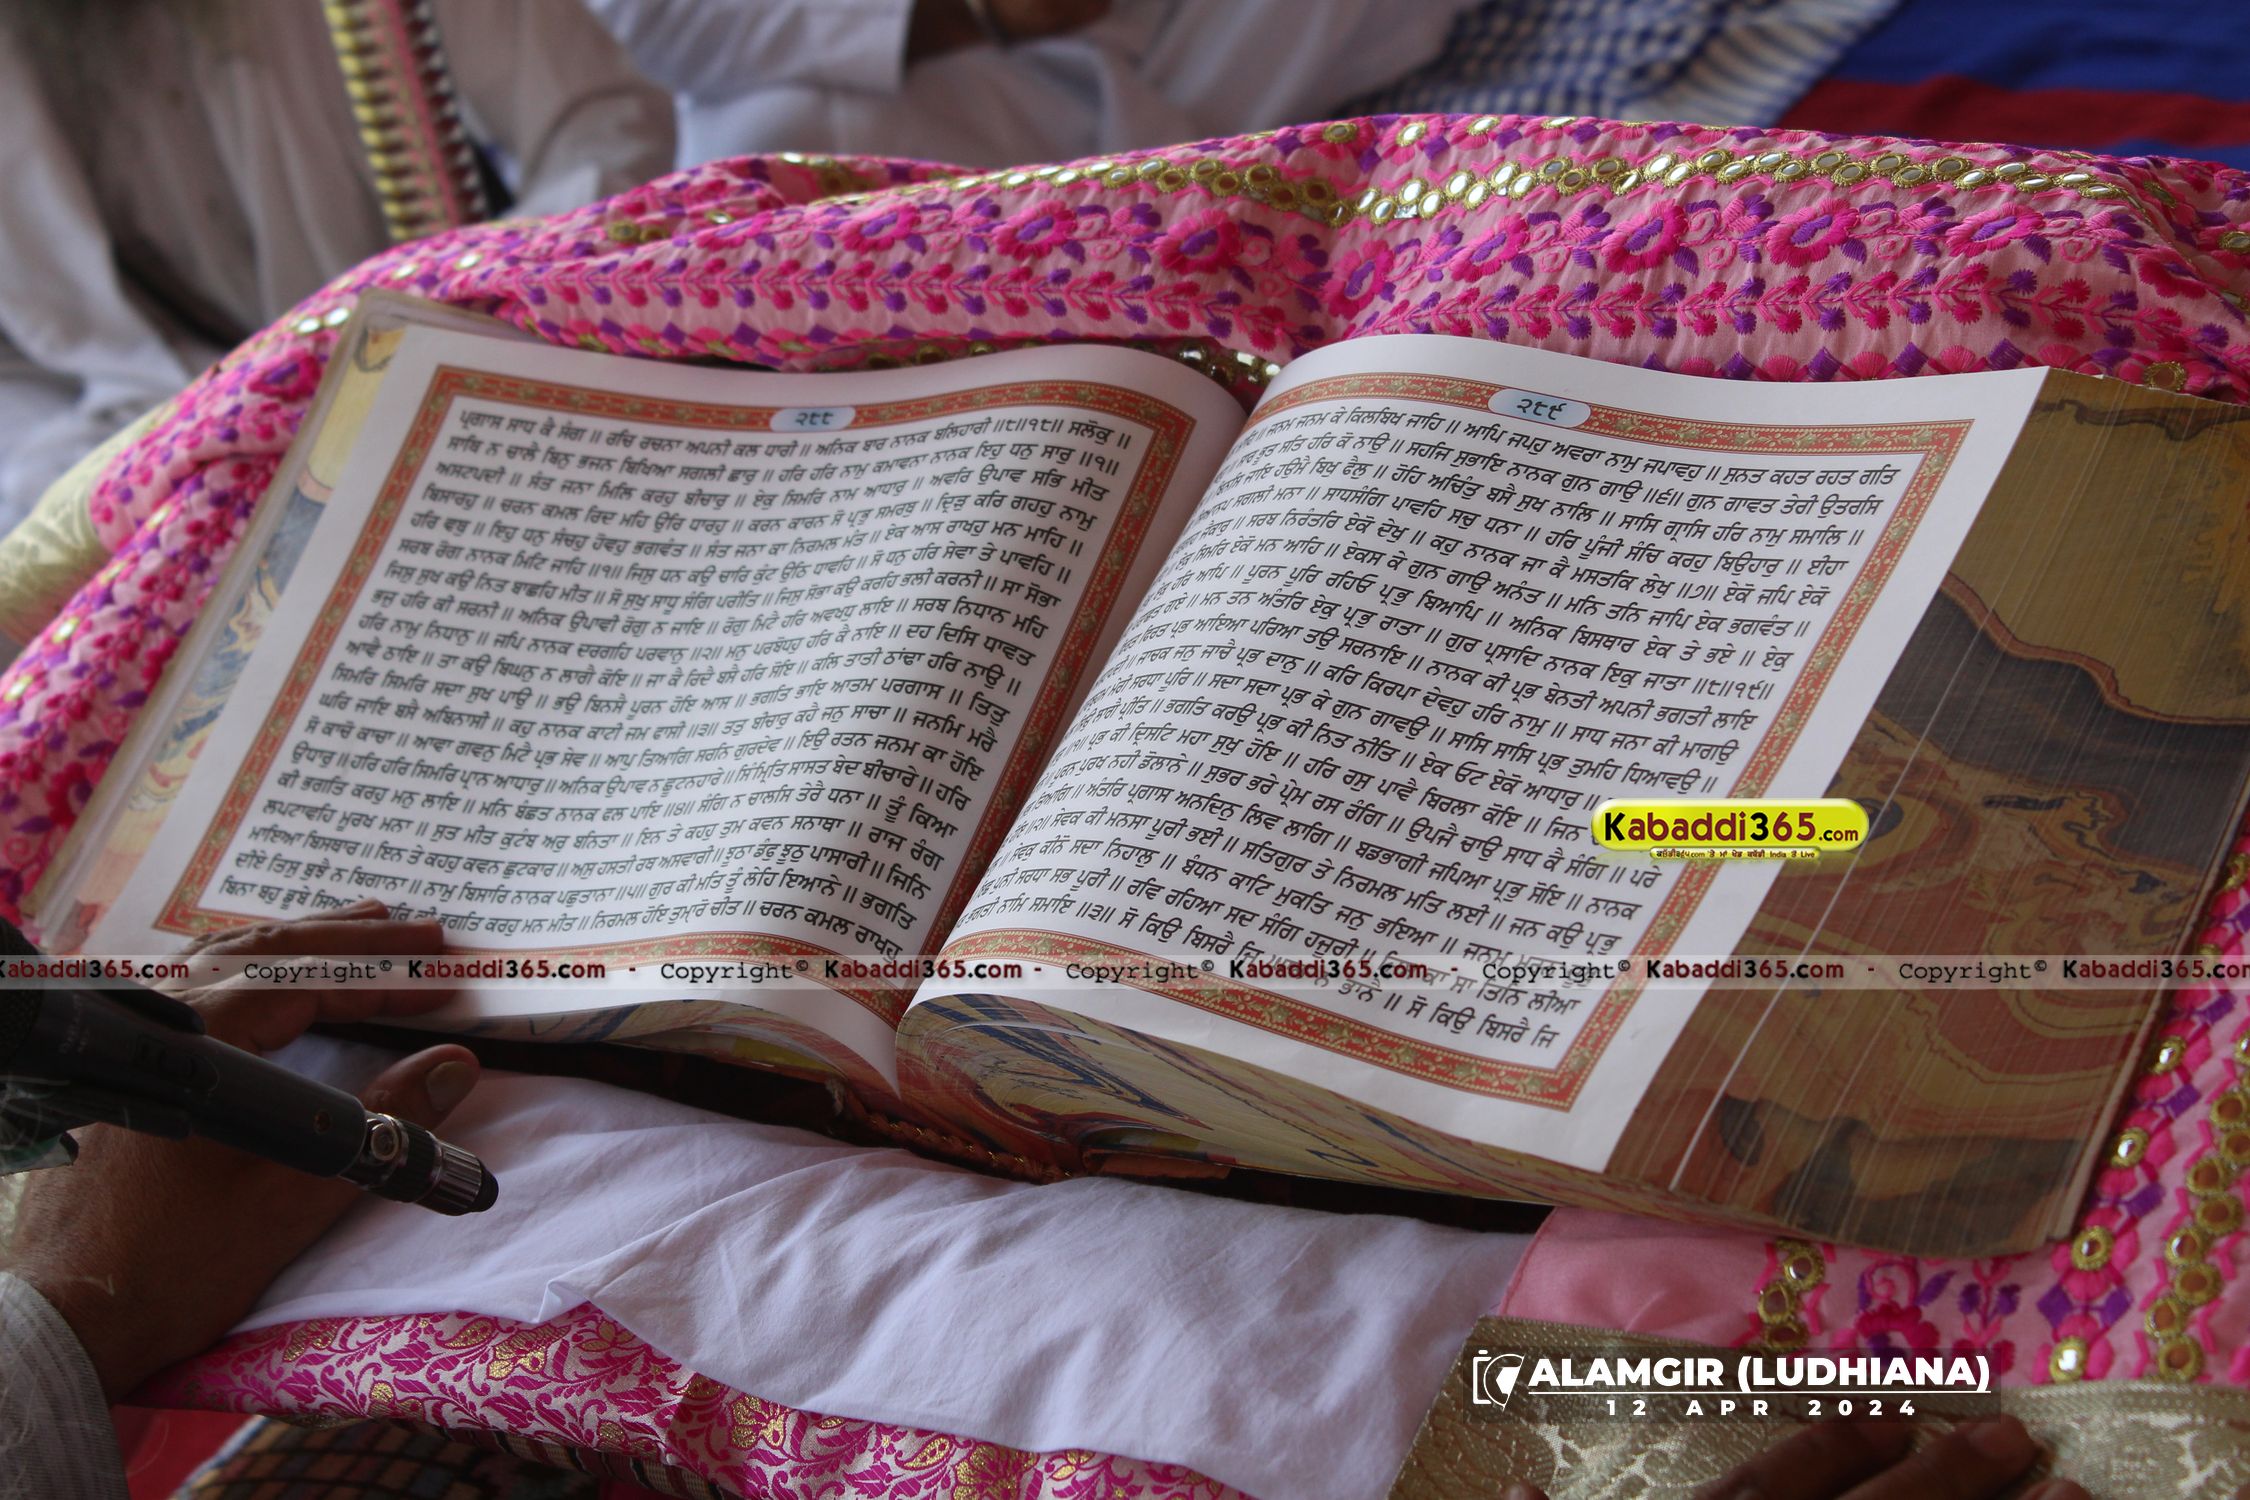 ੨੮੮
ਪ੍ਰਗਾਸ ਸਾਧ ਕੈ ਸੰਗ ॥ ਰਚਿ ਰਚਨਾ ਅਪਨੀ ਕਲ ਧਾਰੀ ॥ ਅਨਿਕ ਬਾਰ ਨਾਨਕ ਬਲਿਹਾਰੀ ॥੮॥੧੮॥ ਸਲੋਕੁ ॥
ਸਾਥਿ ਨ ਚਾਲੈ ਬਿਨੁ ਭਜਨ ਬਿਖਿਆ ਸਗਲੀ ਛਾਰੁ ॥ ਹਰਿ ਹਰਿ ਨਾਮੁ ਕਮਾਵਨਾ ਨਾਨਕ ਇਹੁ ਧਨੁ ਸਾਰੁ ॥੧॥
ਅਸਟਪਦੀ ॥ ਸੰਤ ਜਨਾ ਮਿਲਿ ਕਰਹੁ ਬੀਚਾਰੁ ॥ ਏਕੁ ਸਿਮਰਿ ਨਾਮ ਆਧਾਰੁ ॥ ਅਵਰਿ ਉਪਾਵ ਸਭਿ ਮੀਤ
ਬਿਸਾਰਹੁ ॥ ਚਰਨ ਕਮਲ ਰਿਦ ਮਹਿ ਉਰਿ ਧਾਰਹੁ ॥ ਕਰਨ ਕਾਰਨ ਸੋ ਪ੍ਰਭੁ ਸਮਰਥੁ ॥ ਦ੍ਰਿੜੁ ਕਰਿ ਗਹਹੁ ਨਾਮੁ
ਹਰਿ ਵਥੁ ॥ ਇਹੁ ਧਨੁ ਸੰਚਹੁ ਹੋਵਹੁ ਭਗਵੰਤ ॥ ਸੰਤ ਜਨਾ ਕਾ ਨਿਰਮਲ ਮੰਤ ॥ ਏਕ ਆਸ ਰਾਖਹੁ ਮਨ ਮਾਹਿ ॥
ਸਰਬ ਰੋਗ ਨਾਨਕ ਮਿਟਿ ਜਾਹਿ ॥੧॥ ਜਿਸੁ ਧਨ ਕਉ ਚਾਰਿ ਕੁੰਟ ਉਠਿ ਧਾਵਹਿ ॥ ਸੋ ਧਨੁ ਹਰਿ ਸੇਵਾ ਤੇ ਪਾਵਹਿ ॥
ਜਿਸੁ ਸੁਖ ਕਉ ਨਿਤ ਬਾਛਹਿ ਮੀਤ ॥ ਸੋ ਸੁਖੁ ਸਾਧੂ ਸੰਗਿ ਪਰੀਤਿ ॥ ਜਿਸੁ ਸੋਭਾ ਕਉ ਕਰਹਿ ਭਲੀ ਕਰਨੀ ॥ ਸਾ ਸੋਭਾ
ਭਜੁ ਹਰਿ ਕੀ ਸਰਨੀ ॥ ਅਨਿਕ ਉਪਾਵੀ ਰੋਗੁ ਨ ਜਾਇ ॥ ਰੋਗੁ ਮਿਟੈ ਹਰਿ ਅਵਖਧੁ ਲਾਇ ॥ ਸਰਬ ਨਿਧਾਨ ਮਹਿ
ਹਰਿ ਨਾਮੁ ਨਿਧਾਨੁ ॥ ਜਪਿ ਨਾਨਕ ਦਰਗਹਿ ਪਰਵਾਨੁ ॥੨॥ ਮਨੁ ਪਰਬੋਧਹੁ ਹਰਿ ਕੈ ਨਾਇ ॥ ਦਹ ਦਿਸਿ ਧਾਵਤ
ਆਵੈ ਠਾਇ ॥ ਤਾ ਕਉ ਬਿਘਨੁ ਨ ਲਾਗੈ ਕੋਇ ॥ ਜਾ ਕੈ ਰਿਦੈ ਬਸੈ ਹਰਿ ਸੋਇ ॥ ਕਲਿ ਤਾਤੀ ਠਾਂਢਾ ਹਰਿ ਨਾਉ ॥
ਸਿਮਰਿ ਸਿਮਰਿ ਸਦਾ ਸੁਖ ਪਾਉ ॥ ਭਉ ਬਿਨਸੈ ਪੂਰਨ ਹੋਇ ਆਸ ॥ ਭਗਤਿ ਭਾਇ ਆਤਮ ਪਰਗਾਸ ॥ ਤਿਤੁ
ਘਰਿ ਜਾਇ ਬਸੈ ਅਬਿਨਾਸੀ ॥ ਕਹੁ ਨਾਨਕ ਕਾਟੀ ਜਮ ਫਾਸੀ ॥੩॥ ਤਤੁ ਬੀਚਾਰੁ ਕਹੈ ਜਨੁ ਸਾਚਾ ॥ ਜਨਮਿ ਮਰੈ
ਸੋ ਕਾਚੋ ਕਾਚਾ ॥ ਆਵਾ ਗਵਨੁ ਮਿਟੈ ਪ੍ਰਭ ਸੇਵ ॥ ਆਪੁ ਤਿਆਗਿ ਸਰਨਿ ਗੁਰਦੇਵ ॥ ਇਉ ਰਤਨ ਜਨਮ ਕਾ ਹੋਇ
ਉਧਾਰੁ ॥ ਹਰਿ ਹਰਿ ਸਿਮਰਿ ਪ੍ਰਾਨ ਆਧਾਰੁ ॥ ਅਨਿਕ ਉਪਾਵ ਨ ਛੂਟਨਹਾਰੇ ॥ ਸਿੰਮ੍ਰਿਤਿ ਸਾਸਤ ਬੇਦ ਬੀਚਾਰੇ ॥ ਹਰਿ
ਕੀ ਭਗਤਿ ਕਰਹੁ ਮਨੁ ਲਾਇ ॥ ਮਨਿ ਬੰਛਤ ਨਾਨਕ ਫਲ ਪਾਇ ॥੪॥ ਸੰਗਿ ਨ ਚਾਲਸਿ ਤੇਰੈ ਧਨਾ ॥ ਤੂੰ ਕਿਆ
ਲਪਟਾਵਹਿ ਮੂਰਖ ਮਨਾ ॥ ਸੁਤ ਮੀਤ ਕੁਟੰਬ ਅਰੁ ਬਨਿਤਾ ॥ ਇਨ ਤੇ ਕਹਹੁ ਤੁਮ ਕਵਨ ਸਨਾਥਾ ॥ ਰਾਜ ਰੰਗ
ਮਾਇਆ ਬਿਸਥਾਰ ॥ ਇਨ ਤੇ ਕਹਹੁ ਕਵਨ ਛੁਟਕਾਰ ॥ ਅਸੁ ਹਸਤੀ ਰਥ ਅਸਵਾਰੀ ॥ ਝੂਠਾ ਡੰਫੁ ਝੂਠੁ ਪਾਸਾਰੀ ॥ ਜਿਨਿ
ਦੀਏ ਤਿਸੁ ਬੁਝੈ ਨ ਬਿਗਾਨਾ ॥ ਨਾਮੁ ਬਿਸਾਰਿ ਨਾਨਕ ਪਛੁਤਾਨਾ ॥੫॥ ਗੁਰ ਕੀ ਮਤਿ ਤੂੰ ਲੇਹਿ ਇਆਨੇ ॥ ਭਗਤਿ
ਬਿਨਾ ਬਹੁ ਡੂਬੇ ਸਿਆਨੇ ਹਰਿ ਕੀ ਭਗਤਿ ਕਰਹੁ ਮਨ ਮੀਤ ॥ ਨਿਰਮਲ ਹੋਇ ਤੁਮਾਰੋ ਚੀਤ ॥ ਚਰਨ ਕਮਲ ਰਾਖਹੁ
੨੮੯
ਜਨਮ ਜਨਮ ਕੇ ਕਿਲਬਿਖ ਜਾਹਿ ॥ ਆਪਿ ਜਪਹੁ ਅਵਰਾ ਨਾਮੁ ਜਪਾਵਹੁ ॥ ਸੁਨਤ ਕਹਤ ਰਹਤ ਗਤਿ
ਸਾਰ ਭੂਤ ਸਤਿ ਹਰਿ ਕੋ ਨਾਉ ॥ ਸਹਜਿ ਸੁਭਾਇ ਨਾਨਕ ਗੁਨ ਗਾਉ ॥੬॥ ਗੁਨ ਗਾਵਤ ਤੇਰੀ ਉਤਰਸਿ
ਬਿਨਸਿ ਜਾਇ ਹਉਮੈ ਬਿਖੁ ਫੈਲੁ ॥ ਹੋਹਿ ਅਚਿੰਤੁ ਬਸੈ ਸੁਖ ਨਾਲਿ ॥ ਸਾਸਿ ਗ੍ਰਾਸਿ ਹਰਿ ਨਾਮੁ ਸਮਾਲਿ ॥
ਸਿਆਨਪ ਸਗਲੀ ਮਨਾ ॥ ਸਾਧਸੰਗਿ ਪਾਵਹਿ ਸਚੁ ਧਨਾ ॥ ਹਰਿ ਪੂੰਜੀ ਸੰਚਿ ਕਰਹੁ ਬਿਉਹਾਰੁ ॥ ਈਹਾ
ਜੈਕਾਰੁ ॥ ਸਰਬ ਨਿਰੰਤਰਿ ਏਕੋ ਦੇਖੁ ॥ ਕਹੁ ਨਾਨਕ ਜਾ ਕੈ ਮਸਤਕਿ ਲੇਖੁ ॥੭॥ ਏਕੋ ਜਪਿ ਏਕੋ
ਏਕੁ ਸਿਮਰਿ ਏਕੋ ਮਨ ਆਹਿ ॥ ਏਕਸ ਕੇ ਗੁਨ ਗਾਉ ਅਨੰਤ ॥ ਮਨਿ ਤਨਿ ਜਾਪਿ ਏਕ ਭਗਵੰਤ ॥
ਏਕੁ ਹਰਿ ਆਪਿ ॥ ਪੂਰਨ ਪੂਰਿ ਰਹਿਓ ਪ੍ਰਭੁ ਬਿਆਪਿ ॥ ਅਨਿਕ ਬਿਸਥਾਰ ਏਕ ਤੇ ਭਏ ॥ ਏਕੁ
ਪਰਾਛਤ ਗਏ ॥ ਮਨ ਤਨ ਅੰਤਰਿ ਏਕੁ ਪ੍ਰਭੁ ਰਾਤਾ ॥ ਗੁਰ ਪ੍ਰਸਾਦਿ ਨਾਨਕ ਇਕੁ ਜਾਤਾ ॥੮॥੧੯॥
ਫਿਰਤ ਪ੍ਰਭ ਆਇਆ ਪਰਿਆ ਤਉ ਸਰਨਾਇ ॥ ਨਾਨਕ ਕੀ ਪ੍ਰਭ ਬੇਨਤੀ ਅਪਨੀ ਭਗਤੀ ਲਾਇ
ਜਾਚਕ ਜਨੁ ਜਾਚੈ ਪ੍ਰਭ ਦਾਨੁ ॥ ਕਰਿ ਕਿਰਪਾ ਦੇਵਹੁ ਹਰਿ ਨਾਮੁ ॥ ਸਾਧ ਜਨਾ ਕੀ ਮਾਗਉ
ਮੇਰੀ ਸਰਧਾ ਪੂਰਿ ॥ ਸਦਾ ਸਦਾ ਪ੍ਰਭ ਕੇ ਗੁਨ ਗਾਵਉ ॥ ਸਾਸਿ ਸਾਸਿ ਪ੍ਰਭ ਤੁਮਹਿ ਧਿਆਵਉ ॥
ਸਿਉ ਲਾਗੈ ਪ੍ਰੀਤਿ ॥ ਭਗਤਿ ਕਰਉ ਪ੍ਰਭ ਕੀ ਨਿਤ ਨੀਤਿ ॥ ਏਕ ਓਟ ਏਕੋ ਆਧਾਰੁ ॥
॥੧॥ ਪ੍ਰਭ ਕੀ ਦ੍ਰਿਸਟਿ ਮਹਾ ਸੁਖੁ ਹੋਇ ॥ ਹਰਿ ਰਸੁ ਪਾਵੈ ਬਿਰਲਾ ਕੋਇ ॥ ਜਿਨ
ਪੂਰਨ ਪੁਰਖ ਨਹੀ ਡੋਲਾਨੇ ॥ ਸੁਭਰ ਭਰੇ ਪ੍ਰੇਮ ਰਸ ਰੰਗਿ ॥ ਉਪਜੈ ਚਾਉ ਸਾਧ ਕੈ ਸੰਗਿ ॥ ਪਰੇ
ਤਿਆਗਿ ॥ ਅੰਤਰਿ ਪ੍ਰਗਾਸ ਅਨਦਿਨੁ ਲਿਵ ਲਾਗਿ ॥ ਬਡਭਾਗੀ ਜਪਿਆ ਪ੍ਰਭੁ ਸੋਇ ॥ ਨਾਨਕ
॥੨॥ ਸੇਵਕ ਕੀ ਮਨਸਾ ਪੂਰੀ ਭਈ ॥ ਸਤਿਗੁਰ ਤੇ ਨਿਰਮਲ ਮਤਿ ਲਈ ॥ ਜਨ ਕਉ ਪ੍ਰਭੁ
ਸੇਵਕੁ ਕੀਨੋ ਸਦਾ ਨਿਹਾਲੁ ॥ ਬੰਧਨ ਕਾਟਿ ਮੁਕਤਿ ਜਨੁ ਭਇਆ ॥ ਜਨਮ
ਪੁਨੀ ਸਰਧਾ ਸਭ ਪੂਰੀ ॥ ਰਵਿ ਰਹਿਆ ਸਦ ਸੰਗਿ ਹਜੂਰੀ ॥ ਕਾ ਸਾ ਤਿਨਿ ਲੀਆ
ਭਗਤੀ ਨਾਮਿ ਸਮਾਇ ॥੩॥ ਸੋ ਕਿਉ ਬਿਸਰੈ ਜਿ ਭਾਨੈ ॥ ਸੋ ਕਿਉ ਬਿਸਰੈ ਜਿ
Kabaddi365.com
Kabaddi365.com - Copyright© Kabaddi365.com - Copyright© Kabaddi365.com - Copyright© Kabaddi365.com - Copyright© Kabaddi365.com - Copyright© Kabaddi365.com
ALAMGIR (LUDHIANA)
12 APR 2024